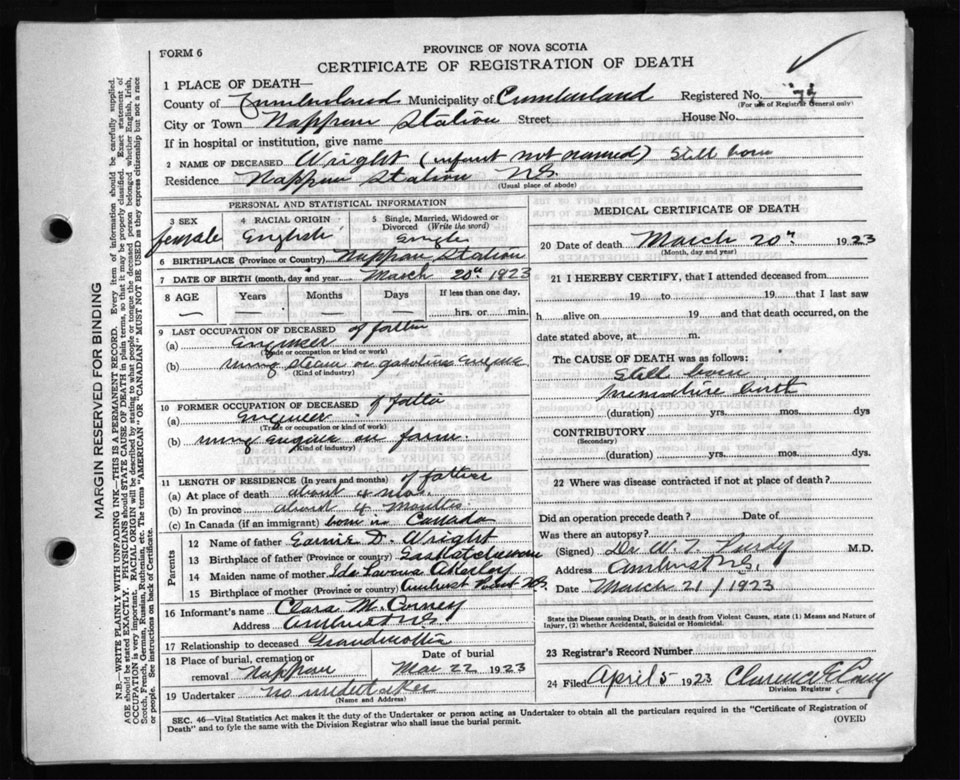 FORM 6
PROVINCE OF NOVA SCOTIA
CERTIFICATE OF REGISTRATION OF DEATH
1 PLACE OF DEATH—
County of Cumberland Municipality of Cumberland Registered No.
(For use of Registrar General only)
City or Town Nappan Station Street House No.
If in hospital or institution, give name
2 NAME OF DECEASED Wright (infant not named) Still born
Residence Nappan Station N.S.
(Usual place of abode)
PERSONAL AND STATISTICAL INFORMATION
3 SEX 4 RACIAL ORIGIN 5 Single, Married, Widowed or Divorced (Write the word)
female English Single
6 BIRTHPLACE (Province or Country) Nappan Station
7 DATE OF BIRTH (month, day and year) March 20th 1923
8 AGE Years Months Days If less than one day,
— — — hrs. or min.
9 LAST OCCUPATION OF DECEASED of father
(a) Engineer
(Trade or occupation or kind of work)
(b) using steam or gasoline Engine
(Kind of industry)
10 FORMER OCCUPATION OF DECEASED of father
(a) Engineer
(Trade or occupation or kind of work)
(b) using Engine on farm.
(Kind of industry)
11 LENGTH OF RESIDENCE (In years and months) of father
(a) At place of death about 4 mos.
(b) In province about 4 months
(c) In Canada (if an immigrant) born in Canada
Parents
12 Name of father D. Wright
13 Birthplace of father (Province or country) Saskatchewan
14 Maiden name of mother Ida
15 Birthplace of mother (Province or country) Amherst Point N.S.
16 Informant's name Clara M.
Address Amherst N.S.
17 Relationship to deceased Grandmother
18 Place of burial, cremation or removal Nappan Date of burial Mar 22 1923
19 Undertaker No undertaker
(Name and Address)
MEDICAL CERTIFICATE OF DEATH
20 Date of death March 20th 1923
(Month, day and year)
21 I HEREBY CERTIFY, that I attended deceased from
19 to 19 that I last saw
h alive on 19 and that death occurred, on
date stated above, at m.
The CAUSE OF DEATH was as follows:
Still born
premature birth
(duration) yrs. mos. dys
CONTRIBUTORY
(Secondary)
(duration) yrs. mos. dys.
22 Where was disease contracted if not at place of death?
Did an operation precede death? Date of
Was there an autopsy?
(Signed) Dr W. T. Purdy M.D.
Address Amherst N.S.
Date March 21/1923
State the Disease causing Death, or in death from Violent Causes, state (1) Means and Nature of Injury, (2) whether Accidental, Suicidal or Homicidal.
23 Registrar's Record Number
24 Filed April 5 1923 Clarence
Division Registrar
SEC. 46—Vital Statistics Act makes it the duty of the Undertaker or person acting as Undertaker to obtain all the particulars required in the "Certificate of Registration of
Death" and to fyle the same with the Division Registrar who shall issue the burial permit.
(OVER)
MARGIN RESERVED FOR BINDING
N.B.—WRITE PLAINLY WITH UNFADING INK—THIS IS A PERMANENT RECORD. Every item of information should be carefully supplied.
AGE should be stated EXACTLY. PHYSICIANS should STATE CAUSE OF DEATH in plain terms, so that it may be properly classified. Exact statement of
OCCUPATION is very important. RACIAL ORIGIN will be described by stating to what people or tongue the deceased person belonged whether English, Irish,
Scotch, French, German, Russian, Ruthenian, etc. The terms "AMERICAN" OR "CANADIAN" MUST NOT BE USED as they express citizenship but not a race
or people. See instructions on back of Certificate.